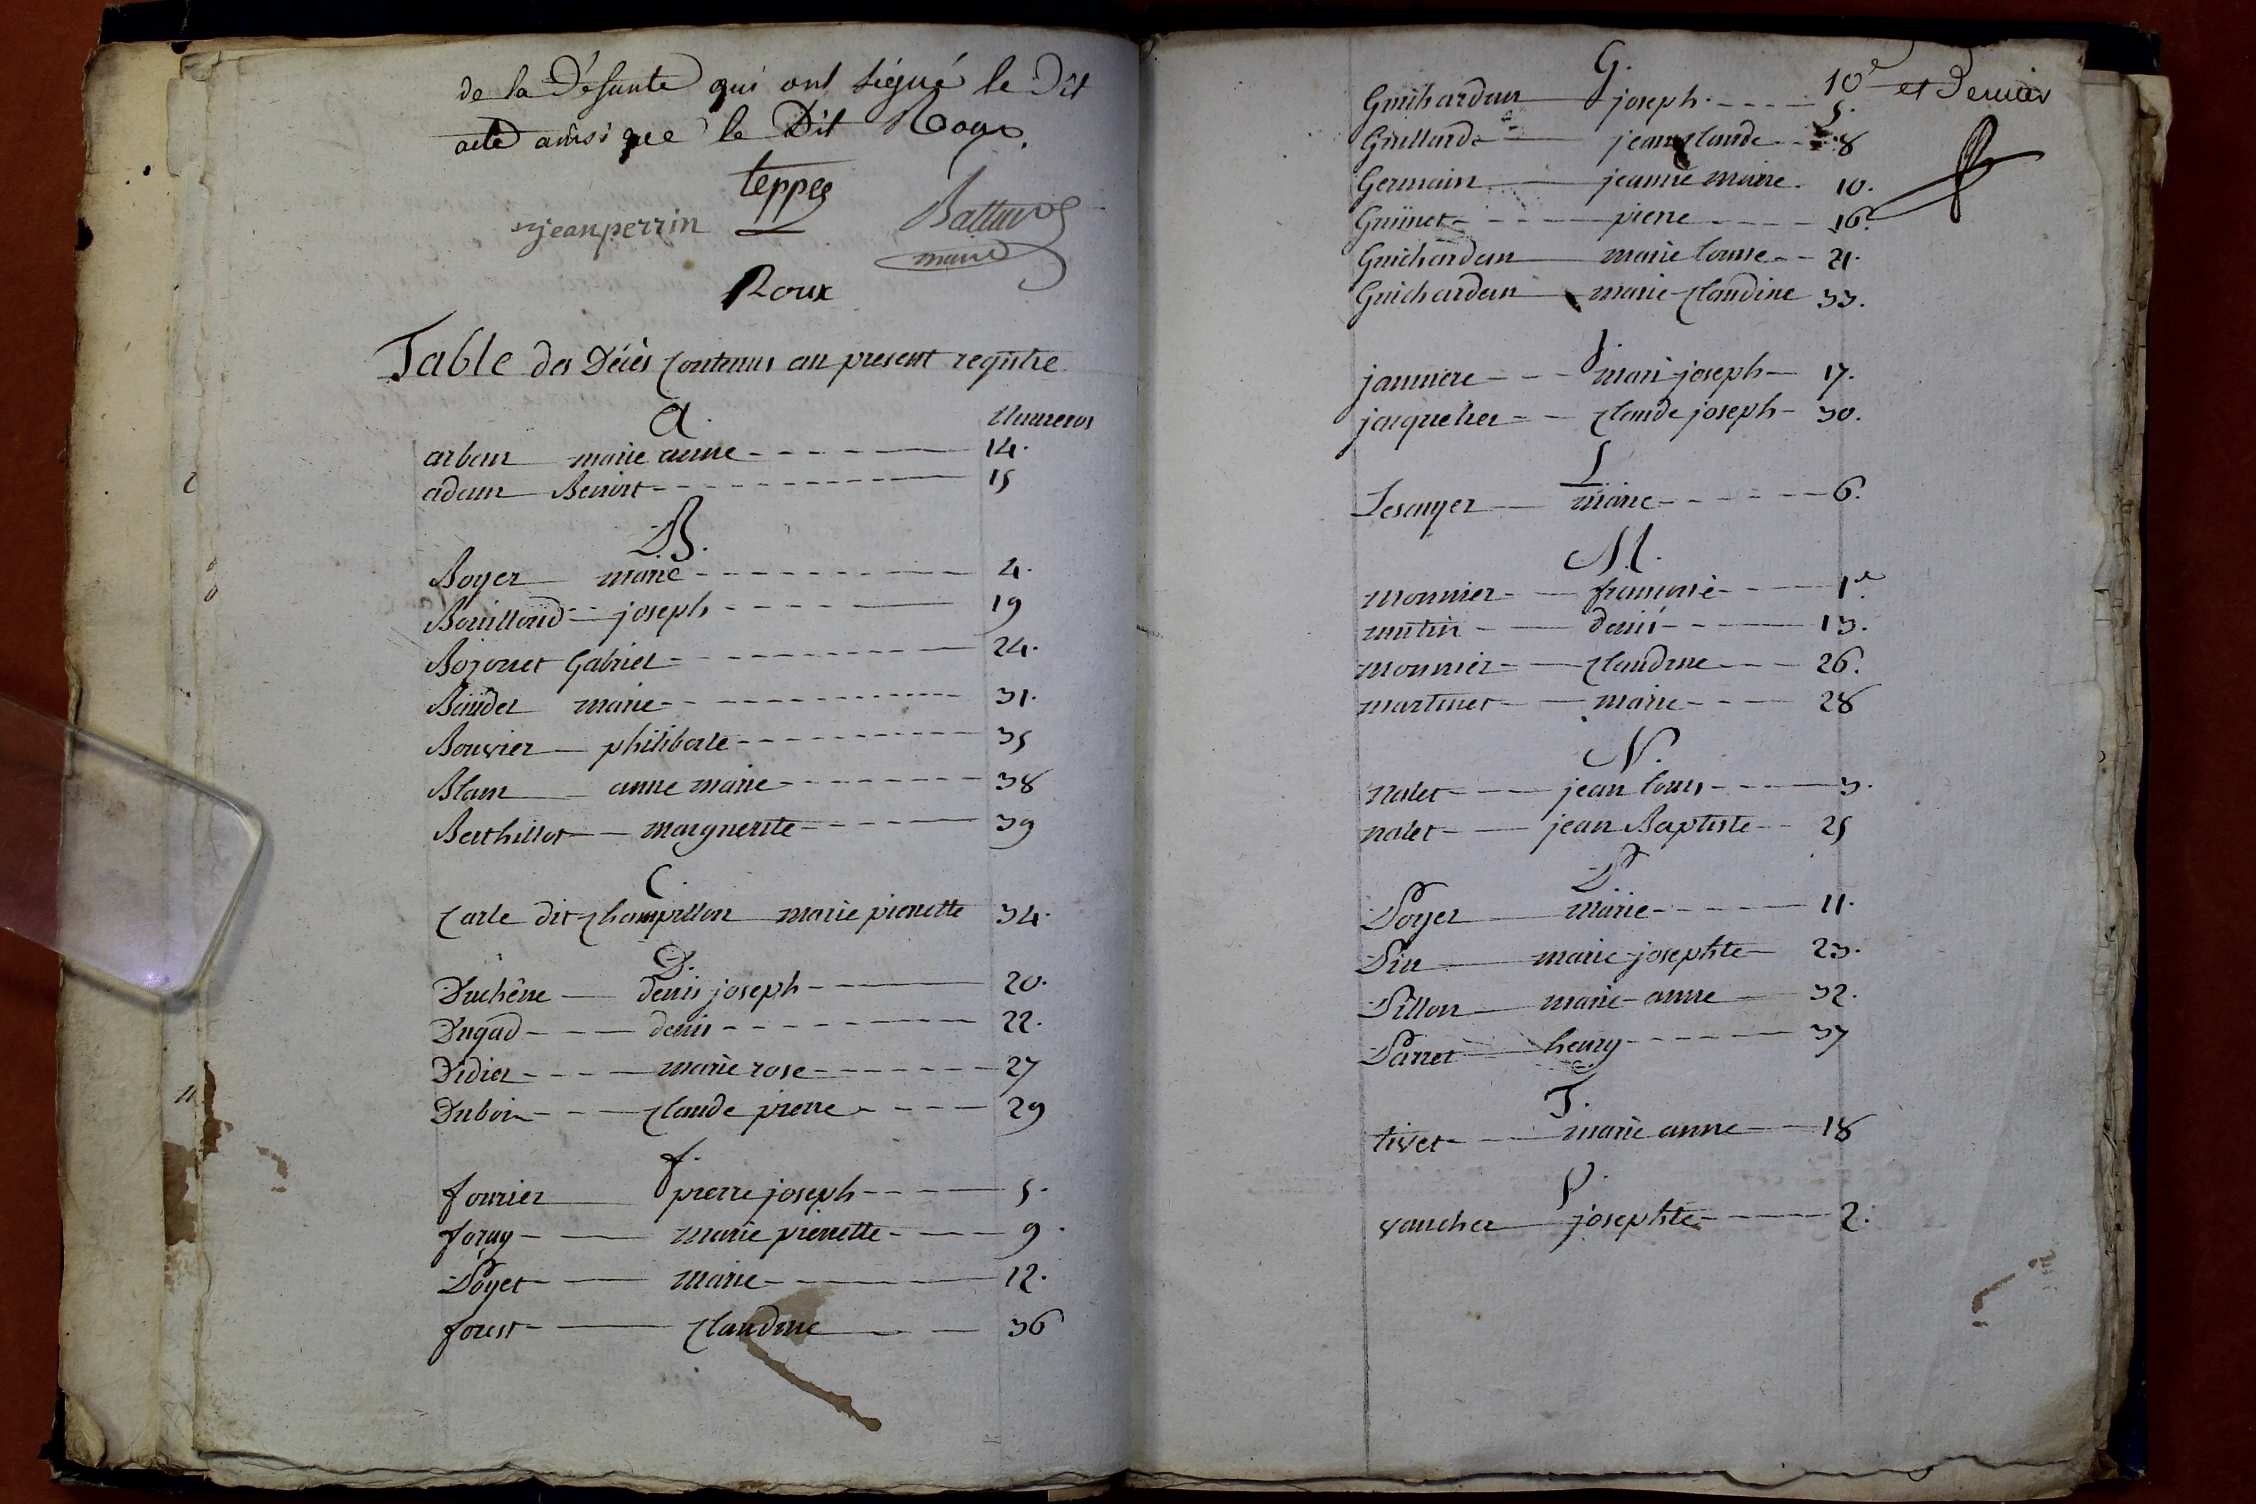 de la Défunte qui ont signé le Dit
acte ainsi que le Dit Roux
teppe
jean perrin
maire
Roux
Table des Décès Contenus au present registre
A. Numeros
arban marie anne 14.
adam Benoit 15
B.
Boyer marie 4.
Bouilloud joseph 19
Bojonet Gabriel 24.
marie 31.
Bouvier philiberte 35
Blanc anne marie 38
Berthillot marguerite 39
C.
Carle dit Champillon marie pierrette 34.
D.
Duchêne denis joseph 20.
Dugad denis 22.
Didier marie rose 27
Dubois Claude pierre 29
f.
fourier pierre joseph 5.
foray marie pierrette 9.
Poyet marie 12.
forest Claudine 36
10e et Dernier
G.
Guichardan joseph 5.
Guillard jean Claude 8
Germain jeanne marie 10.
pierre 16.
Guichardan marie louise 21.
Guichardan marie Claudine 33.
J.
janniere mari joseph 17.
jacquelier Claude joseph 30.
L
Lesanyer marie 6.
M.
monnier françoise 1er
mutin denis 13.
monnier Claudine 26.
martinet marie 28
N.
nalet jean louis 3.
nalet jean Baptiste 25
P
Poyer marie 11.
Pin marie josephte 23.
Pillon marie anne 32.
Parret henry 37
T.
tivet marie anne 18
V.
vaucher josephte 2.